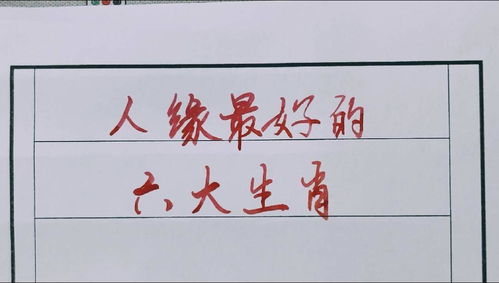 人缘最好的
六大生肖